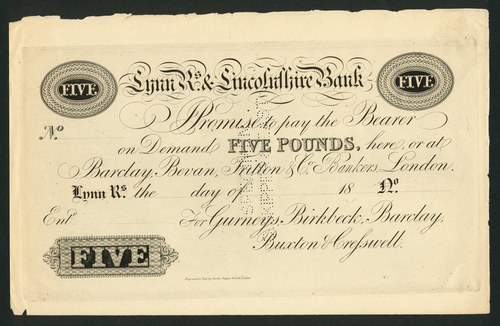 FIVE Lynn Rs. & Lincolnshire Bank FIVE
No I Promise to pay the Bearer
on Demand FIVE POUNDS, here or at
Barclay, Bevan, Tritton & Co. Bankers, London.
Lynn Rs. the day of 18 No.
Entd. For Gurneys, Birkbeck, Barclay,
Buxton & Cresswell.
FIVE